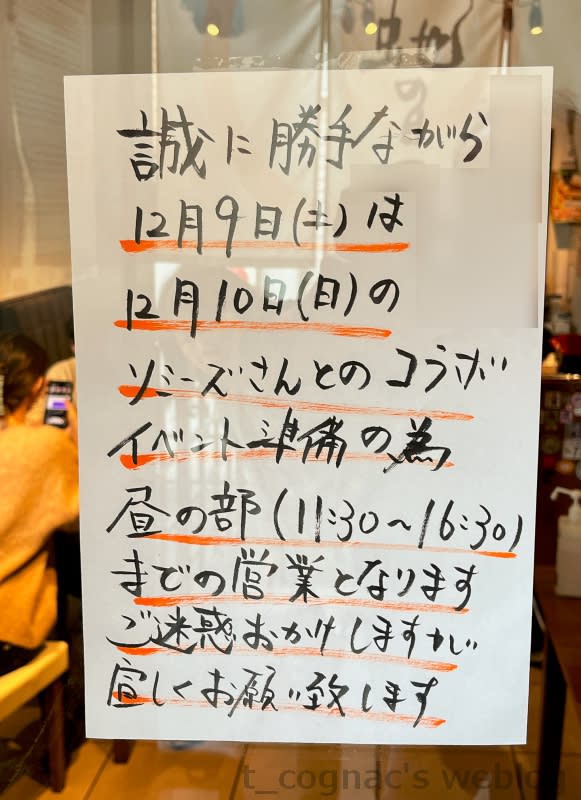 誠に勝手ながら
12月9日(土)は
12月10日(日)の
ソミーズさんとのコラボ
イベント準備の為
昼の部(11:30~16:30)
までの営業となります
ご迷惑おかけしますが
宜しくお願い致します
t_cognac's weblog